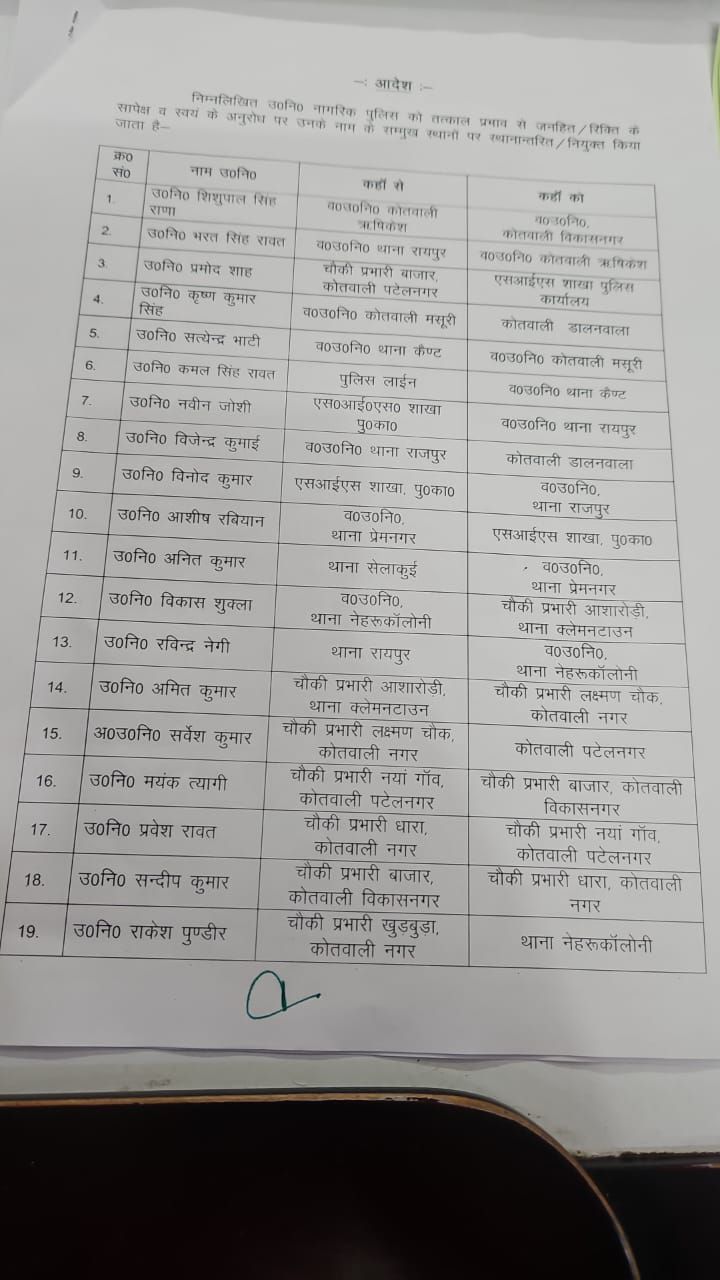 -: आदेश :-
निम्नलिखित उ0नि0 नागरिक पुलिस को तत्काल प्रभाव से जनहित/रिक्ति के
सापेक्ष व स्वयं के अनुरोध पर उनके नाम के सम्मुख स्थानों पर स्थानान्तरित/नियुक्त किया
जाता है–
क्र0 सं0 नाम उ0नि0 कहाँ से कहाँ को
1. उ0नि0 शिशुपाल सिंह राणा व0उ0नि0 कोतवाली ऋषिकेश व0उ0नि0, कोतवाली विकासनगर
2. उ0नि0 भरत सिंह रावत व0उ0नि0 थाना रायपुर व0उ0नि0 कोतवाली ऋषिकेश
3. उ0नि0 प्रमोद शाह चौकी प्रभारी बाजार, कोतवाली पटेलनगर एसआईएस शाखा पुलिस कार्यालय
4. उ0नि0 कृष्ण कुमार सिंह व0उ0नि0 कोतवाली मसूरी कोतवाली डालनवाला
5. उ0नि0 सत्येन्द्र भाटी व0उ0नि0 थाना कैण्ट व0उ0नि0 कोतवाली मसूरी
6. उ0नि0 कमल सिंह रावत पुलिस लाईन व0उ0नि0 थाना कैण्ट
7. उ0नि0 नवीन जोशी एस0आई0एस0 शाखा पु0का0 व0उ0नि0 थाना रायपुर
8. उ0नि0 विजेन्द्र कुमाई व0उ0नि0 थाना राजपुर कोतवाली डालनवाला
9. उ0नि0 विनोद कुमार एसआईएस शाखा, पु0का0 व0उ0नि0, थाना राजपुर
10. उ0नि0 आशीष रबियान व0उ0नि0, थाना प्रेमनगर एसआईएस शाखा, पु0का0
11. उ0नि0 अनित कुमार थाना सेलाकुई व0उ0नि0, थाना प्रेमनगर
12. उ0नि0 विकास शुक्ला व0उ0नि0, थाना नेहरूकॉलोनी चौकी प्रभारी आशारोड़ी, थाना क्लेमनटाउन
13. उ0नि0 रविन्द्र नेगी थाना रायपुर व0उ0नि0, थाना नेहरूकॉलोनी
14. उ0नि0 अमित कुमार चौकी प्रभारी आशारोड़ी, थाना क्लेमनटाउन चौकी प्रभारी लक्ष्मण चौक, कोतवाली नगर
15. अ0उ0नि0 सर्वेश कुमार चौकी प्रभारी लक्ष्मण चौक, कोतवाली नगर कोतवाली पटेलनगर
16. उ0नि0 मयंक त्यागी चौकी प्रभारी नयां गॉव, कोतवाली पटेलनगर चौकी प्रभारी बाजार, कोतवाली विकासनगर
17. उ0नि0 प्रवेश रावत चौकी प्रभारी धारा, कोतवाली नगर चौकी प्रभारी नयां गॉव, कोतवाली पटेलनगर
18. उ0नि0 सन्दीप कुमार चौकी प्रभारी बाजार, कोतवाली विकासनगर चौकी प्रभारी धारा, कोतवाली नगर
19. उ0नि0 राकेश पुण्डीर चौकी प्रभारी खुड़बुड़ा, कोतवाली नगर थाना नेहरूकॉलोनी